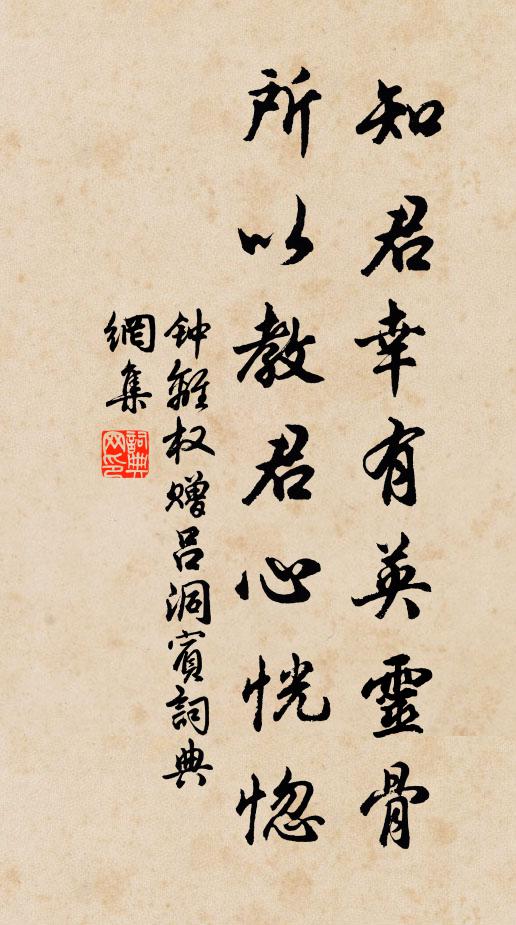 知君幸有英靈骨
所以教君心恍惚
钟離权赠吕洞賓詞典
網集
詞典网印